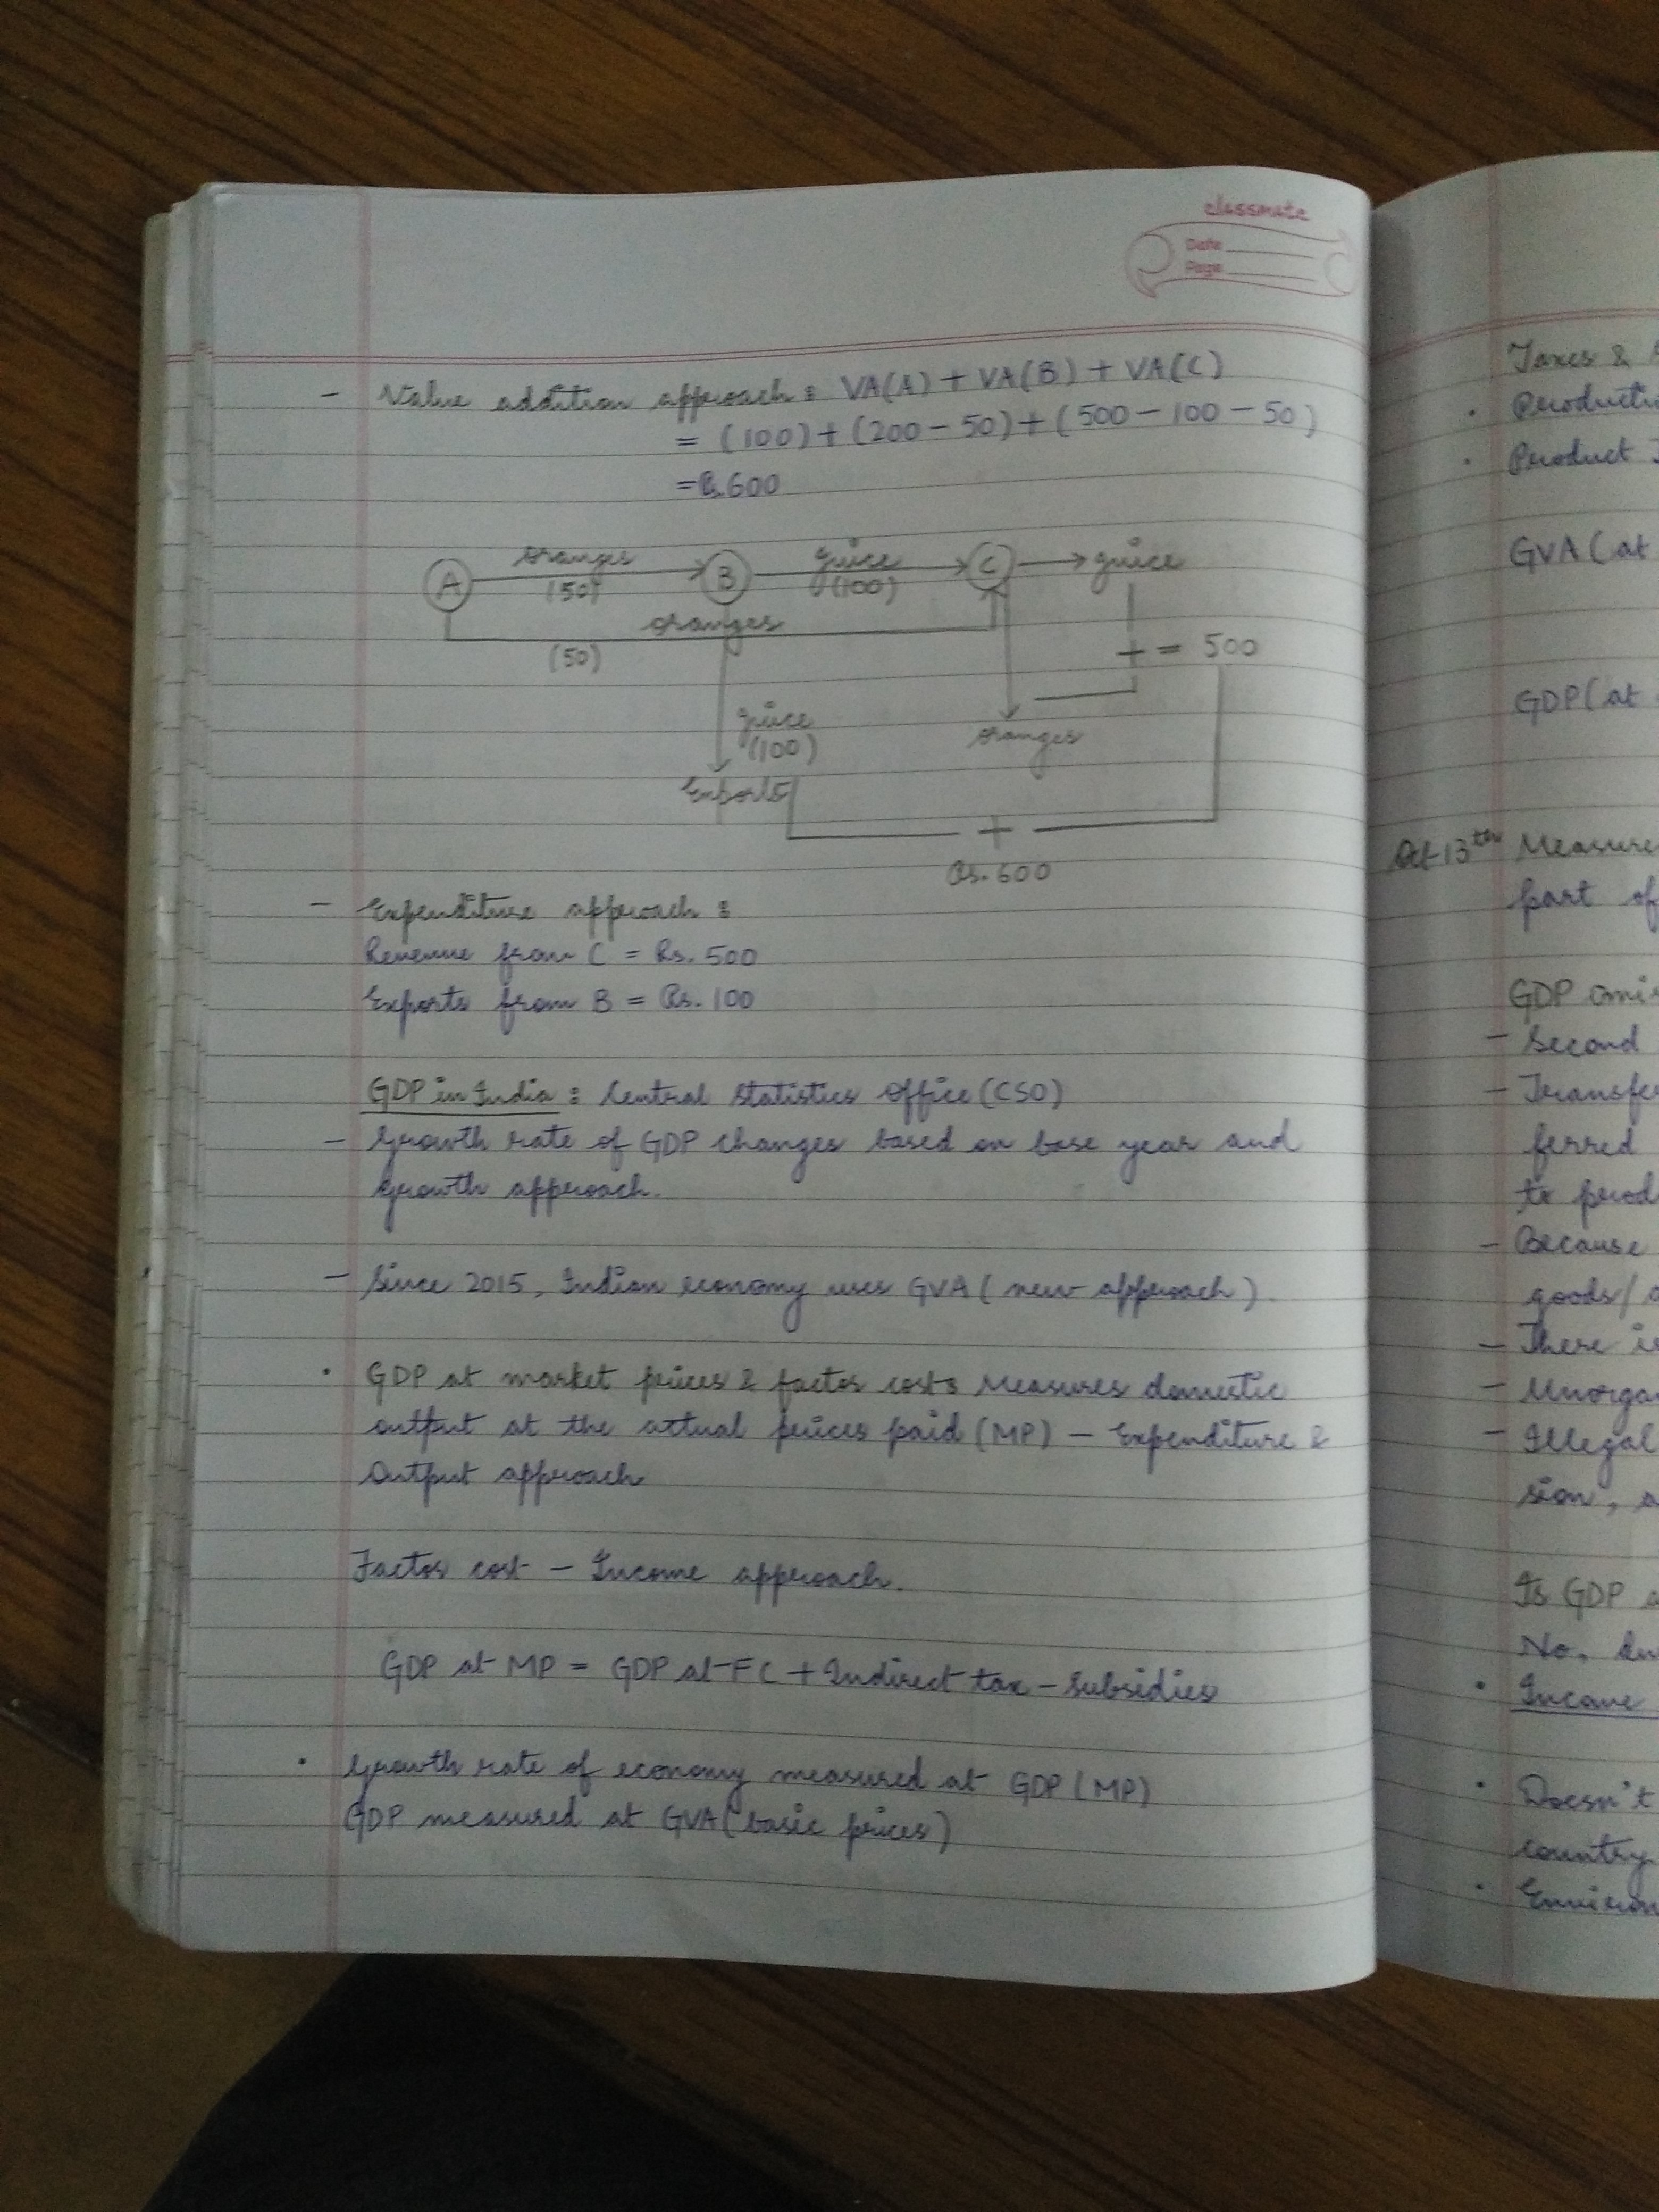 classmate
Date
Page
- Value addition approach : VA(A) + VA(B) + VA(C)
= (100) + (200 - 50) + (500 - 100 - 50)
= Rs.600
A oranges (50) B juice (100) C → juice
oranges
(50)
+ = 500
juice
(100)
oranges
Exports
+
Rs. 600
- Expenditure approach :
Revenue from C = Rs. 500
Exports from B = Rs. 100
GDP in India : Central Statistics Office (CSO)
- Growth rate of GDP changes based on base year and
growth approach.
- Since 2015, Indian economy uses GVA (new approach).
· GDP at market prices & factor cost : Measures domestic
output at the actual prices paid (MP) - Expenditure &
Output approach
Factor cost - Income approach.
GDP at MP = GDP at FC + Indirect tax - Subsidies
· Growth rate of economy measured at GDP (MP)
GDP measured at GVA (basic prices)
Taxes &
· Producti
· Product
GVA (at
GDP (at
Oct 13th Measure
part of
GDP omi
- Second
- Transfe
ferred
to prod
- Because
goods/
- There is
- Unorga
- Illegal
sion, a
Is GDP a
No,
· Income
· Doesn't
country
· Environ